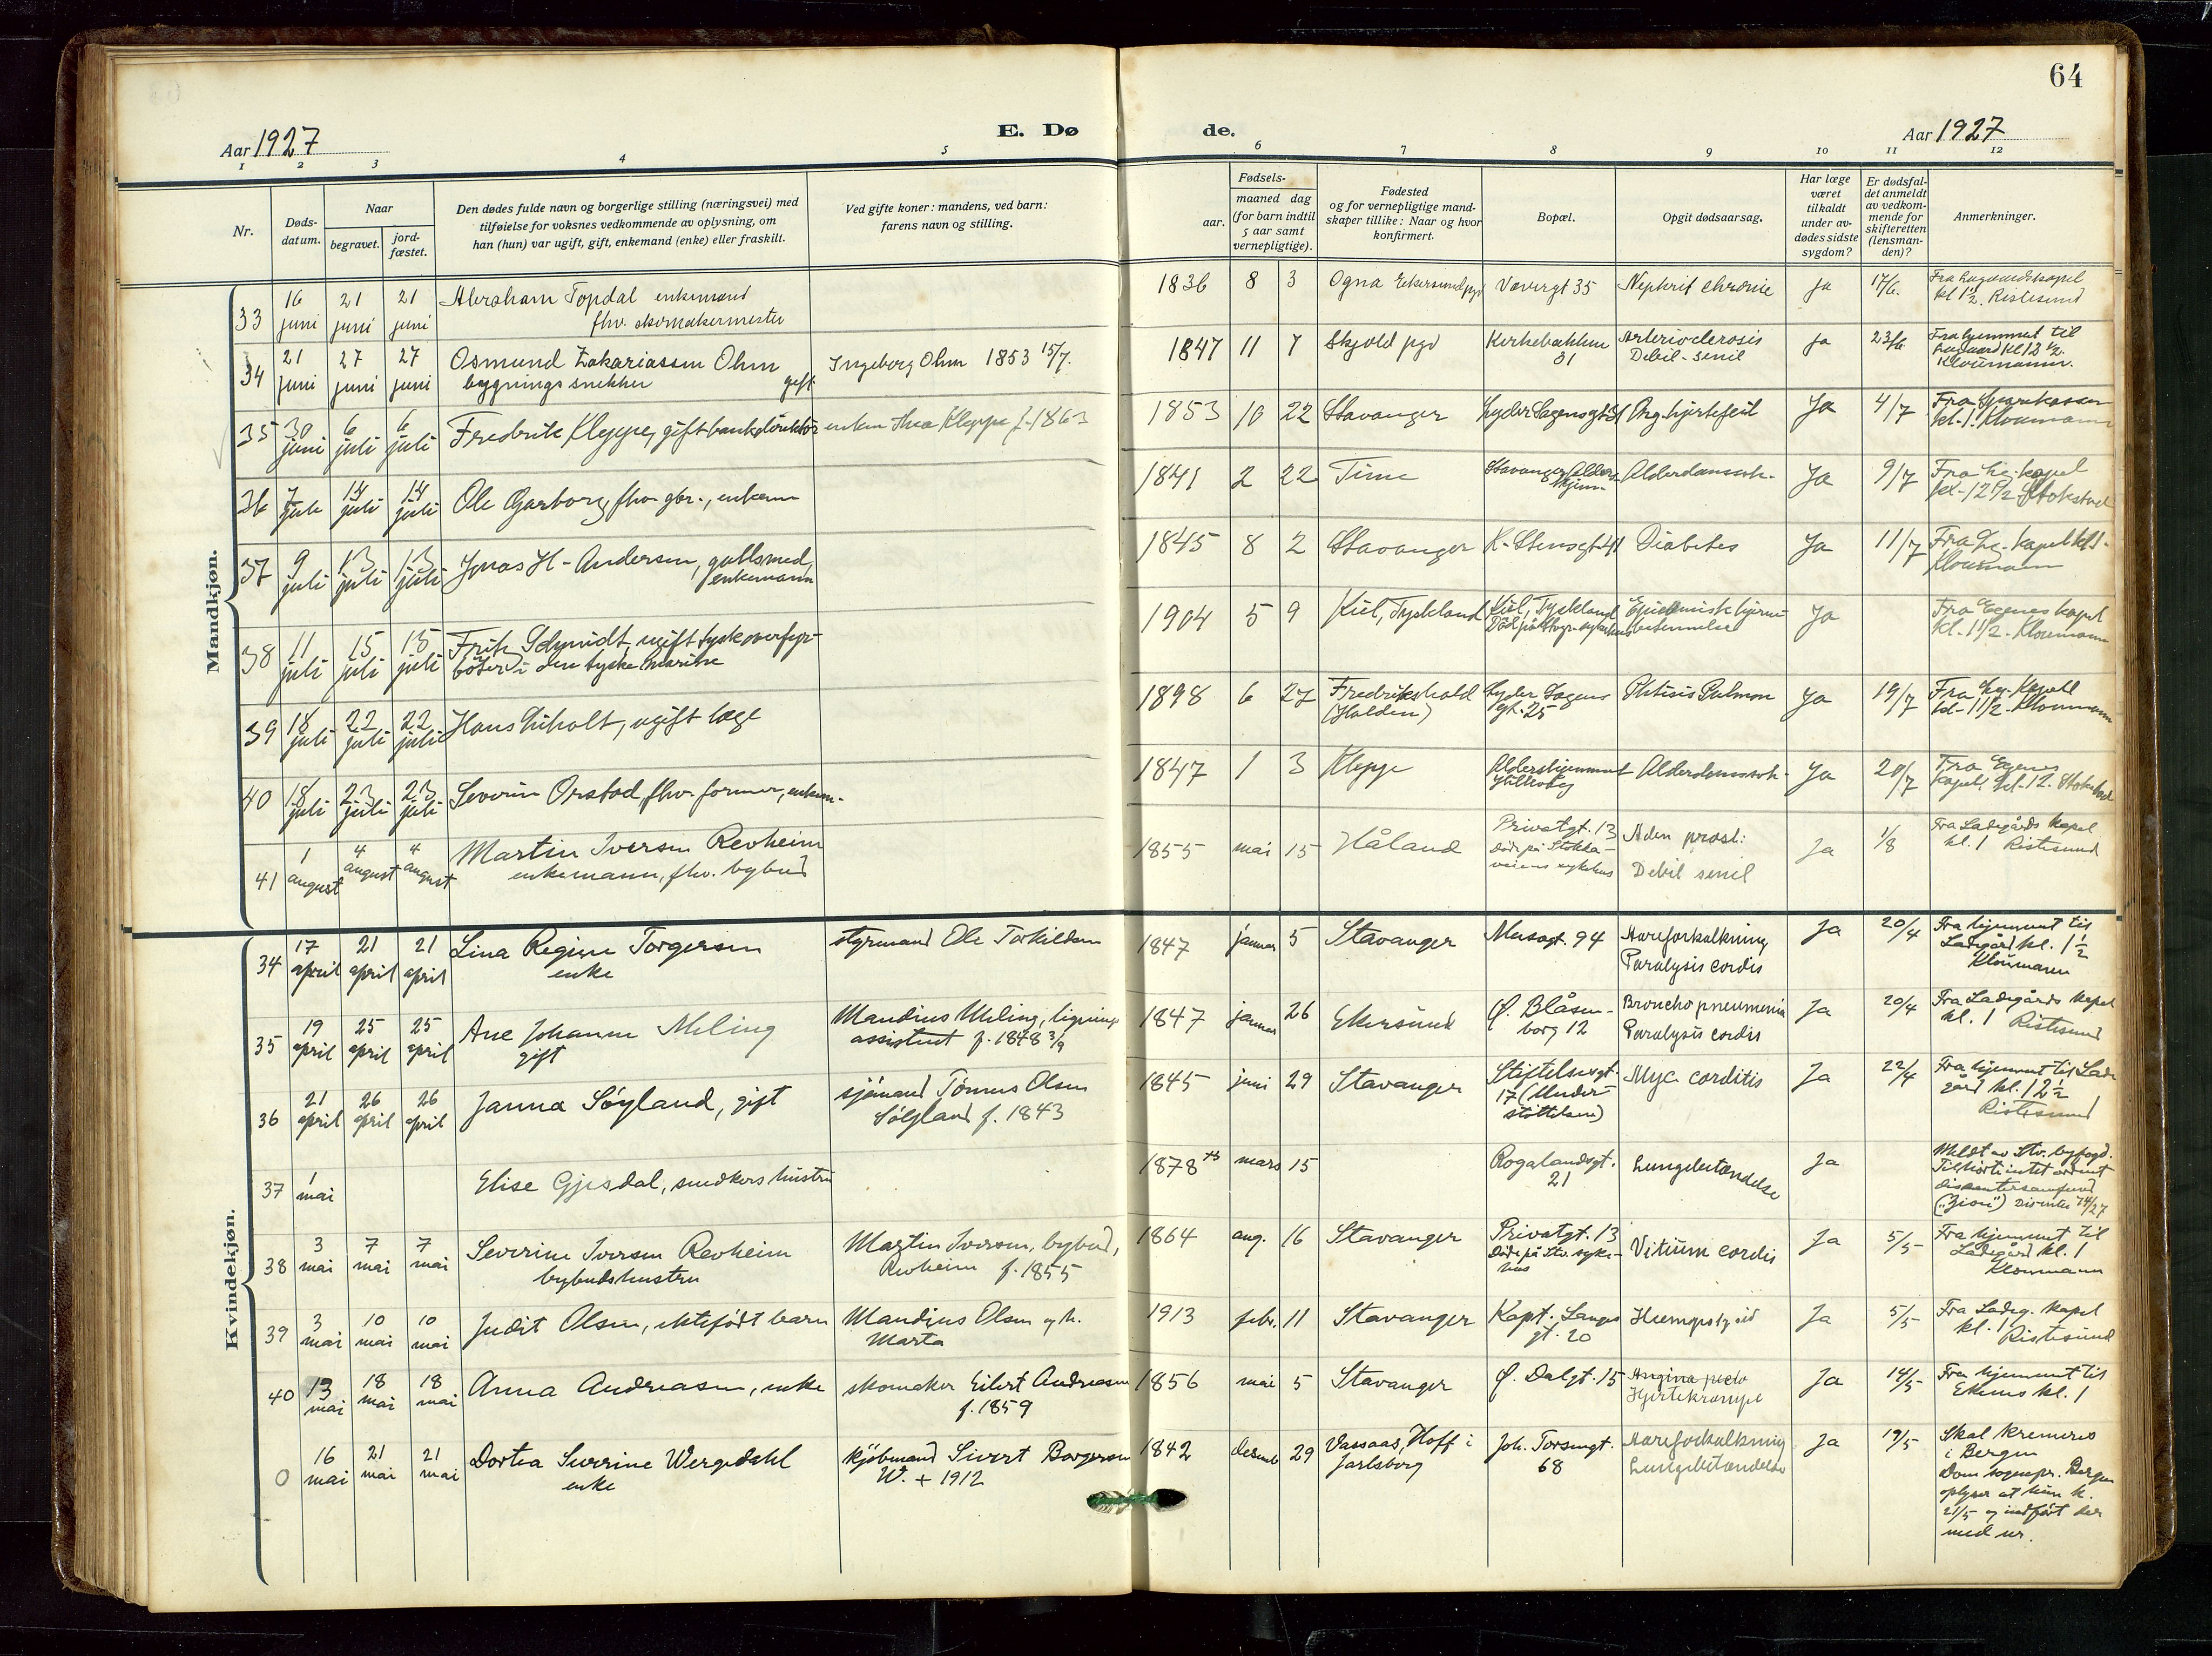 64
Aar 1927
E. Dø
de.
Aar 1927
1 2 3 4 5 6 7 8 9 10 11 12
Nr.
Døds-
datum.
Naar
begravet.
jord-
fæstet.
Den dødes fulde navn og borgerlige stilling (næringsvei) med
tilføielse for voksnes vedkommende av oplysning, om
han (hun) var ugift, gift, enkemand (enke) eller fraskilt.
Ved gifte koner: mandens, ved barn:
farens navn og stilling.
Fødsels-
aar.
maaned dag
(for barn indtil
5 aar samt
vernepligtige).
Fødested
og for vernepligtige mand-
skaper tillike: Naar og hvor
konfirmert.
Bopæl.
Opgit dødsaarsag.
Har læge
været
tilkaldt
under av-
dødes sidste
sygdom?
Er dødsfal-
det anmeldt
av vedkom-
mende for
skifteretten
(lensman-
den)?
Anmerkninger.
Mandkjøn.
33 16 juni 21 juni 21 juni Abraham Topdal enkemand
fhv. skomakermester
1836 8 3 Ogna Ekersund pgd Vævergt 35 Nephrit chronic Ja 17/6.
kl 1½. Ristesund
34 21 juni 27 juni 27 juni Osmund Zakariassen Ohm
bygningssnekker gift
Ingeborg Ohm 1853 15/7.
1847 11 7 Skjold pgd Kirkebakken
31
Debil - senil
Ja 23/6. Fra hjemmet til
Lagaard kl 12 ½.
Kloumann.
35 30 juni 6 juli 6 juli Fredrik Kleppe, gift bankdirektør enken Thea Kleppe f. 1863
1853 10 22 Stavanger Lyder Sagensgt 31 Org. hjertefeil Ja 4/7 Fra Sparekassen
kl. 1. Kloumann
36 7 juli 14 juli 14 juli Ole Garborg, fhv. gbr., enkem
1841 2 22 Time Stavanger Alders
hjem
Ja 9/7 Fra Lg. kapel
kl. 12½ Stokstad
37 9 juli 13 juli 13 juli Jonas H. Andersen, gullsmed,
enkemann
1845 8 2 Stavanger K. Stensgt 41 Diabetes Ja 11/7 Fra Lg. kapel kl 1.
Kloumann
38 11 juli 15 juli 15 juli Fritz Schmidt, ugift tysk overfyr-
böter i den tyske marine
1904 5 9 Kiel, Tyskland Kiel, Tyskland
Död på Stvgr. sykehus
Epidemisk hjerne
betennelse
Ja Fra Egenes kapel
kl. 1½. Kloumann
39 18 juli 22 juli 22 juli Hans, ugift læge
1898 6 27 Fredrikshald
(Halden)
Lyder Sagens
gt. 25
Phtisis Pulmon Ja 19/7 Fra Lg. Kapell
kl. 1½. Kloumann
40 18 juli 23 juli 23 juli Severin Orstad, fhv. former, enkem.
1847 1 3 Klepp Aldershjemmet
Ja 20/7 Fra Egenes
kapel. kl. 12. Stokstad
41 1 august 4 august 4 august Martin Iversen Revheim
enkemann, fhv. bybud
1855 mai 15 Håland Privatgt. 13
död på Stokka-
veiens sykehus
Aden prost:
Debil senil
Ja 1/8 Fra Ladegårds kapel
kl. 1 Ristesund
Kvindekjøn.
34 17 april 21 april 21 april Lina Regine Torgersen
enke
styrmand Ole Torkildsen
1847 januar 5 Stavanger Musegt. 94 Aareforkalkning
Paralysis cordis
Ja 20/4 Fra hjemmet til
Ladegård kl. 1½
Kloumann
35 19 april 25 april 25 april Ane Johanne Meling
gift
Mandius Meling, lignings
assistent f. 1848 3/9
1847 januar 26 Ekersund Ø. Blåsen-
borg 12
Bronchopneumenia
Paralysis cordis
Ja 20/4 Fra Ladegårds kapel
kl. 1 Ristesund
36 21 april 26 april 26 april Janna Söyland, gift
sjömand Tönnes Olsen
Söyland f. 1843
1845 juni 29 Stavanger Stiftelsesgt.
17 (Under-
stöttelsen)
Myc. corditis Ja 22/4 Fra hjemmet til Lade
gård kl. 12½
Ristesund
37 1 mai Elise Gjesdal, snedkers hustru
1878 mars 15 Rogalandsgt.
21
Lungebetændelse
Ja Meldt av Stv. byfogd.
Tilhörte intet ordent
dissentersamfund
("Zion")
38 3 mai 7 mai 7 mai Severine Iversen Revheim
bybudshustru
Martin Iversen, bybud,
Revheim f. 1855
1864 aug. 16 Stavanger Privatgt. 13
Döde på Stv. syke-
hus
Vitium cordis Ja 5/5 Fra hjemmet til
Ladegård kl. 1
Kloumann
39 3 mai 10 mai 10 mai Judit Olsen, ektefödt barn
Mandius Olsen og h.
Marta
1913 febr. 11 Stavanger Kapt. Langes
gt. 20
Ja 5/5 Fra Ladeg. kapel
kl. 1
Ristesund
40 13 mai 18 mai 18 mai Anna Andreasen, enke
skomaker Eilert Andreasen
f. 1859
1856 mai 5 Stavanger Ø. Dalgt. 15 Angina pecto
Hjertekrampe
Ja 14/5 Fra hjemmet til
Ekenes kl. 1
0 16 mai 21 mai 21 mai Dortea Severine Wergedahl
enke
kjöbmand Sivert Borgersen
W. + 1912
1842 desemb 29 Vassaas, Hoff i
Jarlsberg
Joh. Torsmgt.
68
Aareforkalkning
Lungebetændelse
Ja 19/5 Skal kremeres
i Bergen
Dom sognepr. Bergen
oplyser at hun k.
21/5 og indfört der
med nr.